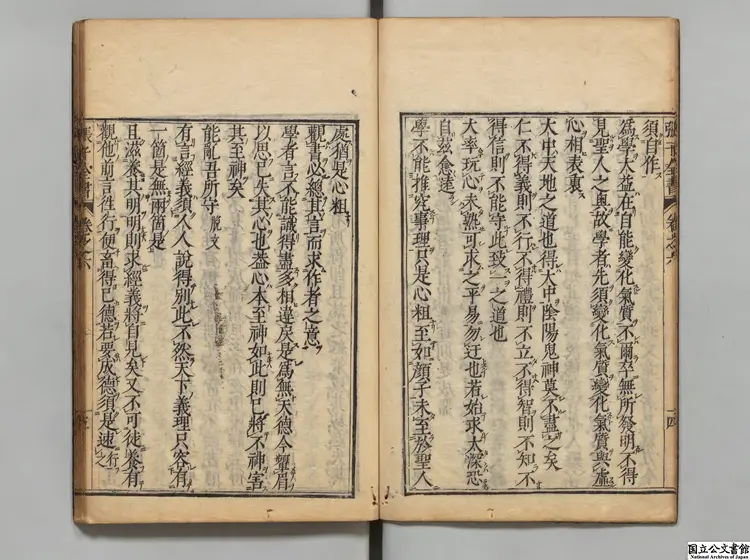 張子全書 卷之六 十四
須自作
爲學大益在自能變化氣質不爾卒無所發明不得
見聖人之奧故學者先須變化氣質變化氣質與虛
心相表裏
大中天地之道也得大中陰陽鬼神莫不盡之矣
仁不得義則不行不得禮則不立不得智則不知不
得信則不能守此致一之道也
大率玩心未熟可求之平易勿迂也若始求太深恐
自茲愈遠
學不能推究事理只是心粗至如顏子未至於聖人
處猶是心粗
觀書必總其言而求作者之意
學者言不能識得盡多相違矣是爲無天德今顰眉
以思已失其心也蓋心本至神如此則已將不神害
其至神矣
能亂吾所守脫文
有言經義須人人說得別此不然天下義理只容有
一箇是無兩箇是
且滋養其明明則求經義將自見矣又不可徒養有
觀他前言徃行便畜得已德若要成德須是速行之
張子全書 卷之六
国立公文書館
National Archives of Japan